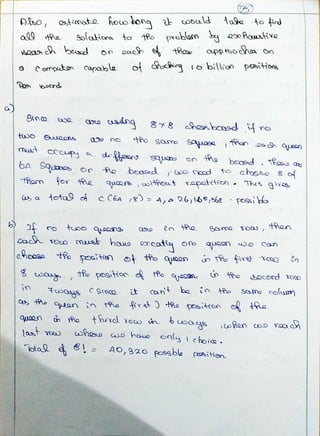 (35)
Also, estimate how long it would take to find
all the solutions to the problem by exhaustive
search based on each of these approaches on
a computer capable of checking 10 billion positions
Per second
a)
Since we are using 8x8 chessboard if no
two queens are no the same square, then each queen
must occupy a different square on the board. There are
64 Squares on the board, we need to choose 8 of
them for the queens, without repetition. This gives
us a total of C(64,8) = 4,426,165,368 possible
b) If no two queens are in the same row, then
each row must have exactly one queen we can
choose the position of the queen in the first row in
8 ways, the position of the queen in the second row
in 7 ways (since it can't be in the same column
as the queen in the first) the position of the
queen in the third row in 6 ways, when we reach
last row where we have only 1 choice.
Total of 8! = 40,320 possible position.